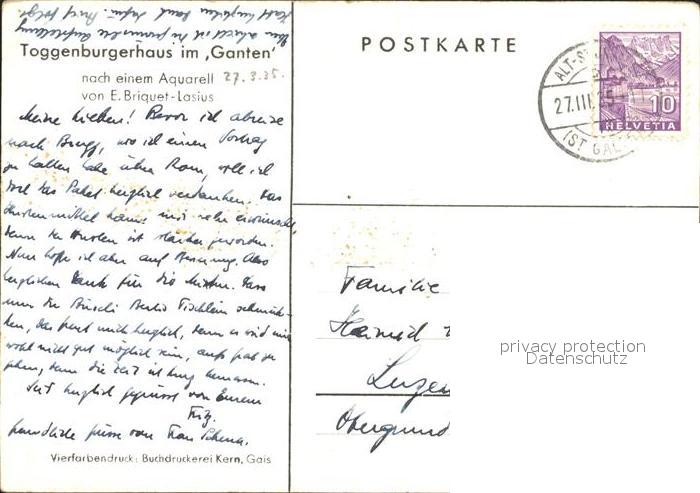 Toggenburgerhaus im ‚Ganten'
nach einem Aquarell 27.3.35.
von E. Briquet-Lasius
Meine Lieben! Bevor ich abreise
nach Brugg, wo ich einen Vortrag
zu halten habe über Rom, will ich
das Paket herzlich verdanken. Das
Hustenmittel kam mir sehr erwünscht
denn der Husten ist stärker geworden.
Nun hoffe ich aber auf Besserung. Also
herzlichen Dank für die Mixtur. Dass
nun die Berlis Tischlein schmück-
ten, das freut mich herzlich, denn es wird mir
wohl nicht gut möglich sein, aufs Grab zu
gehen, denn die Zeit ist kurz bemessen.
Seid herzlich gegrüsst von Eurem
Fritz.
freundliche Grüsse von Frau Schena.
Vierfarbendruck: Buchdruckerei Kern, Gais
POSTKARTE
ALT-S
27.III.35
(ST. GAL
10
HELVETIA
Familie
Luzern
Obergrund
privacy protection
Datenschutz